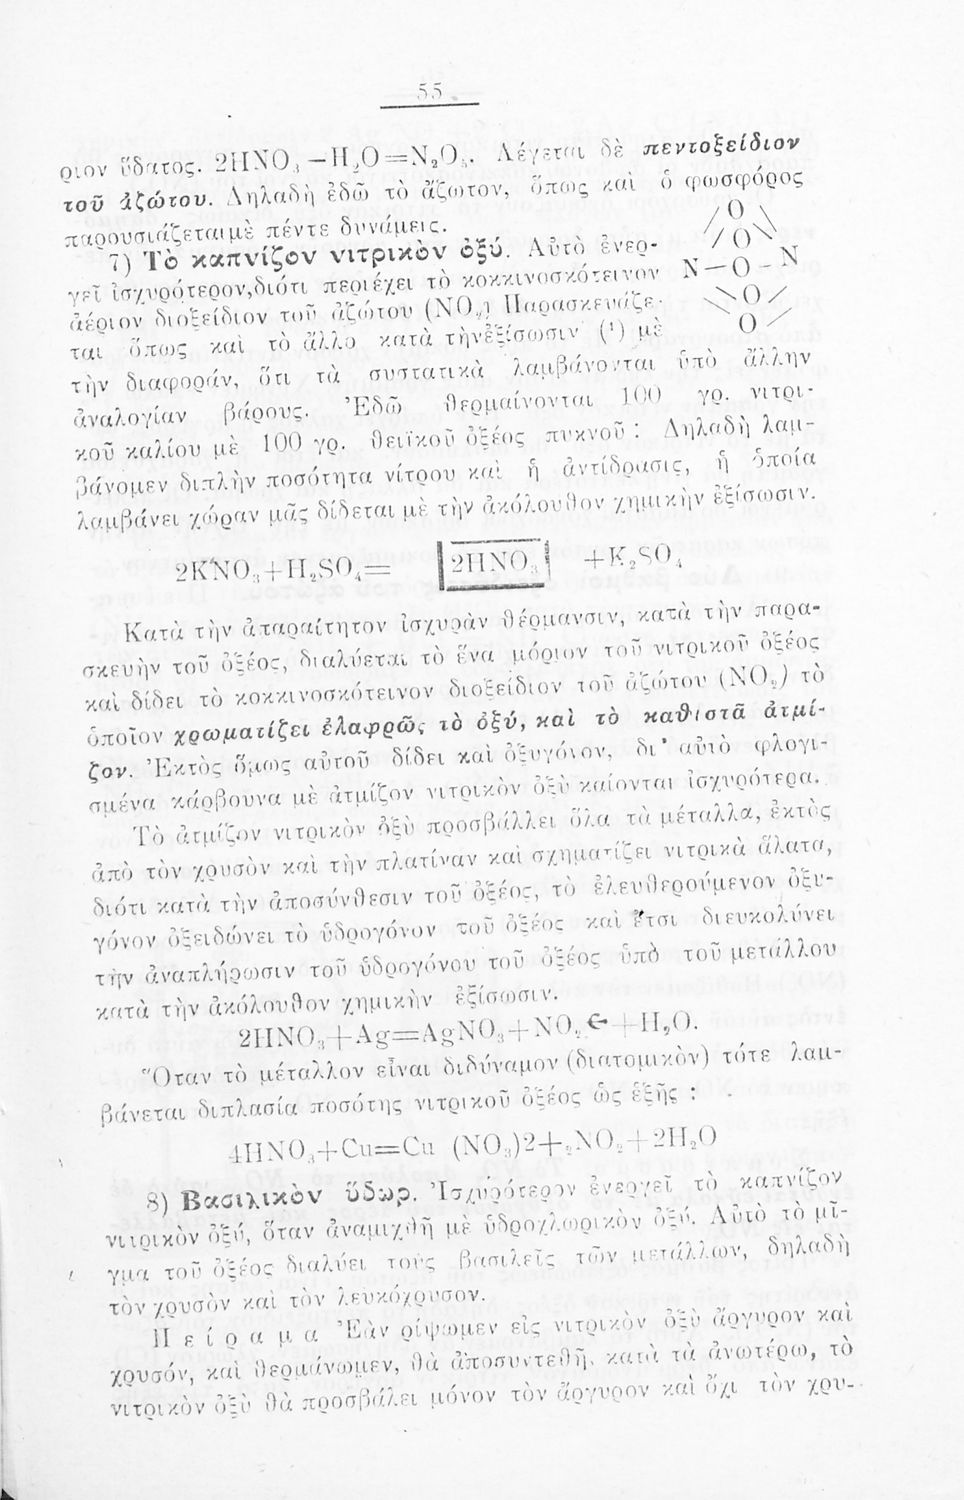 55
ριον ὕδατος. 2HNO₃—H₂O=N₂O₅. Λέγεται δὲ πεντοξείδιον
τοῦ ἀζώτου. Δηλαδὴ ἐδῶ τὸ ἄζωτον, ὅπως καὶ ὁ φωσφόρος
παρουσιάζεται μὲ πέντε δυνάμεις.
7) Τὸ καπνίζον νιτρικὸν ὀξύ. Αὐτὸ ἐνερ-
γεῖ ἰσχυρότερον, διότι περιέχει τὸ κοκκινοσκότεινον
ἀέριον διοξείδιον τοῦ ἀζώτου (NO₂) Παρασκευάζε-
ται ὅπως καὶ τὸ ἄλλο κατὰ τὴν ἐξίσωσιν (¹) μὲ
O
O
N—O-N
O
O
τὴν διαφοράν, ὅτι τὰ συστατικὰ λαμβάνονται ὑπὸ ἄλλην
ἀναλογίαν βάρους. Ἐδῶ θερμαίνονται 100 γρ. νιτρι-
κοῦ καλίου μὲ 100 γρ. θειϊκοῦ ὀξέος πυκνοῦ: Δηλαδὴ λαμ-
βάνομεν διπλὴν ποσότητα νίτρου καὶ ἡ ἀντίδρασις, ἡ ὁποία
λαμβάνει χώραν μᾶς δίδεται μὲ τὴν ἀκόλουθον χημικὴν ἐξίσωσιν.
2KNO₃+H₂SO₄= 2HNO₃ +K₂SO₄
Κατὰ τὴν ἀπαραίτητον ἰσχυρὰν θέρμανσιν, κατὰ τὴν παρα-
σκευὴν τοῦ ὀξέος, διαλύεται τὸ ἕνα μόριον τοῦ νιτρικοῦ ὀξέος
καὶ δίδει τὸ κοκκινοσκότεινον διοξείδιον τοῦ ἀζώτου (NO₂) τὸ
ὁποῖον χρωματίζει ἐλαφρῶς τὸ ὀξύ, καὶ τὸ καθιστᾶ ἀτμί-
ζον. Ἐκτὸς ὅμως αὐτοῦ δίδει καὶ ὀξυγόνον, δι' αὐτὸ φλογι-
σμένα κάρβουνα μὲ ἀτμίζον νιτρικὸν ὀξὺ καίονται ἰσχυρότερα.
Τὸ ἀτμίζον νιτρικὸν ὀξὺ προσβάλλει ὅλα τὰ μέταλλα, ἐκτὸς
ἀπὸ τὸν χρυσὸν καὶ τὴν πλατίναν καὶ σχηματίζει νιτρικὰ ἅλατα,
διότι κατὰ τὴν ἀποσύνθεσιν τοῦ ὀξέος, τὸ ἐλευθερούμενον ὀξυ-
γόνον ὀξειδώνει τὸ ὑδρογόνον τοῦ ὀξέος καὶ ἔτσι διευκολύνει
τὴν ἀναπλήρωσιν τοῦ ὑδρογόνου τοῦ ὀξέος ὑπὸ τοῦ μετάλλου
κατὰ τὴν ἀκόλουθον χημικὴν ἐξίσωσιν.
2HNO₃+Ag=AgNO₃+NO₂ +H₂O.
Ὅταν τὸ μέταλλον εἶναι διδύναμον (διατομικὸν) τότε λαμ-
βάνεται διπλασία ποσότης νιτρικοῦ ὀξέος ὡς ἑξῆς :
4HNO₃+Cu=Cu (NO₃)2+₂NO₂+2H₂O
8) Βασιλικὸν ὕδωρ. Ἰσχυρότερον ἐνεργεῖ τὸ καπνίζον
νιτρικὸν ὀξύ, ὅταν ἀναμιχθῇ μὲ ὑδροχλωρικὸν ὀξύ. Αὐτὸ τὸ μῖ-
γμα τοῦ ὀξέος διαλύει τοὺς βασιλεῖς τῶν μετάλλων, δηλαδὴ
τὸν χρυσὸν καὶ τὸν λευκόχρυσον.
Πείραμα Ἐὰν ρίψωμεν εἰς νιτρικὸν ὀξὺ ἄργυρον καὶ
χρυσόν, καὶ θερμάνωμεν, θὰ ἀποσυντεθῇ, κατὰ τὰ ἀνωτέρω, τὸ
νιτρικὸν ὀξὺ θὰ προσβάλει μόνον τὸν ἄργυρον καὶ ὄχι τὸν χρυ-